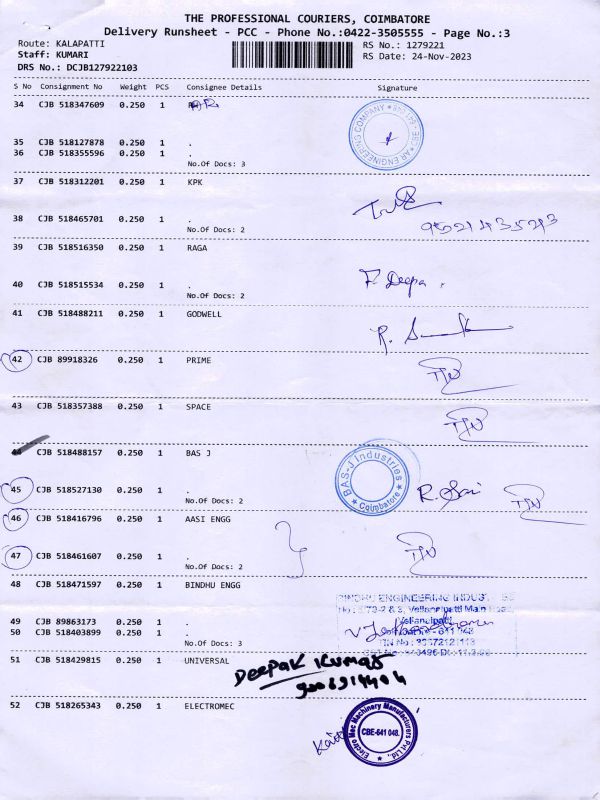 THE PROFESSIONAL COURIERS, COIMBATORE
Delivery Runsheet - PCC - Phone No.:0422-3505555 - Page No.:3
Route: KALAPATTI RS No.: 1279221
Staff: KUMARI RS Date: 24-Nov-2023
DRS No.: DCJB127922103
S No Consignment No Weight PCS Consignee Details Signature
34 CJB 518347609 0.250 1
35 CJB 518127878 0.250 1 .
36 CJB 518355596 0.250 1 .
No.Of Docs: 3
AR ENGINEERING COMPANY
37 CJB 518312201 0.250 1 KPK
38 CJB 518465701 0.250 1 .
No.Of Docs: 2
39 CJB 518516350 0.250 1 RAGA
40 CJB 518515534 0.250 1 .
No.Of Docs: 2
F. Deepa
41 CJB 518488211 0.250 1 GODWELL
42 CJB 89918326 0.250 1 PRIME
43 CJB 518357388 0.250 1 SPACE
44 CJB 518488157 0.250 1 BAS J
45 CJB 518527130 0.250 1 .
No.Of Docs: 2
BAS-J Industries
Coimbatore
R. Sai
46 CJB 518416796 0.250 1 AASI ENGG
47 CJB 518461607 0.250 1 .
No.Of Docs: 2
48 CJB 518471597 0.250 1 BINDHU ENGG
BINDHU ENGINEERING INDUST
Vellanipatti Main
49 CJB 89863173 0.250 1 .
50 CJB 518403899 0.250 1 .
No.Of Docs: 3
51 CJB 518429815 0.250 1 UNIVERSAL
DEEPAK KUMAR
52 CJB 518265343 0.250 1 ELECTROMEC
Electro Mec Machinery Manufacturers Pvt Ltd.
CBE-641 048.